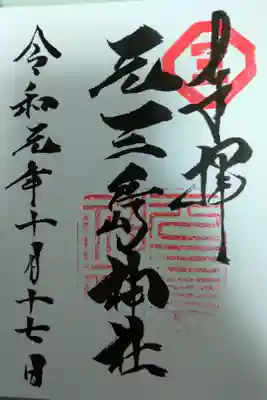 奉拝
元三島神社
令和元年十月十七日